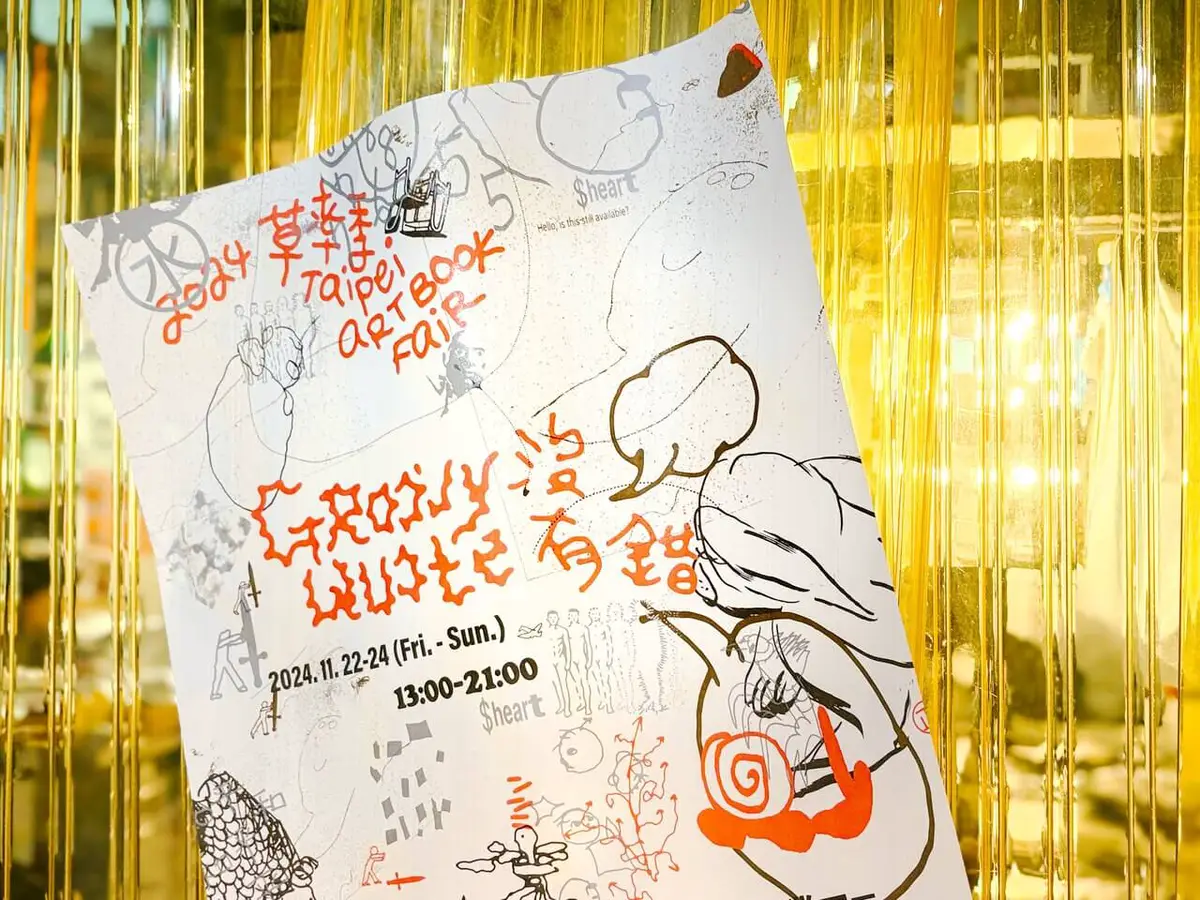 $heart
Hello, is this still available?
水
2024 草率季
Taipei
ART BOOK
FaiR
5
Groovy 沒
Quote 有錯
2024. 11. 22-24 (Fri. - Sun.)
13:00-21:00
$heart